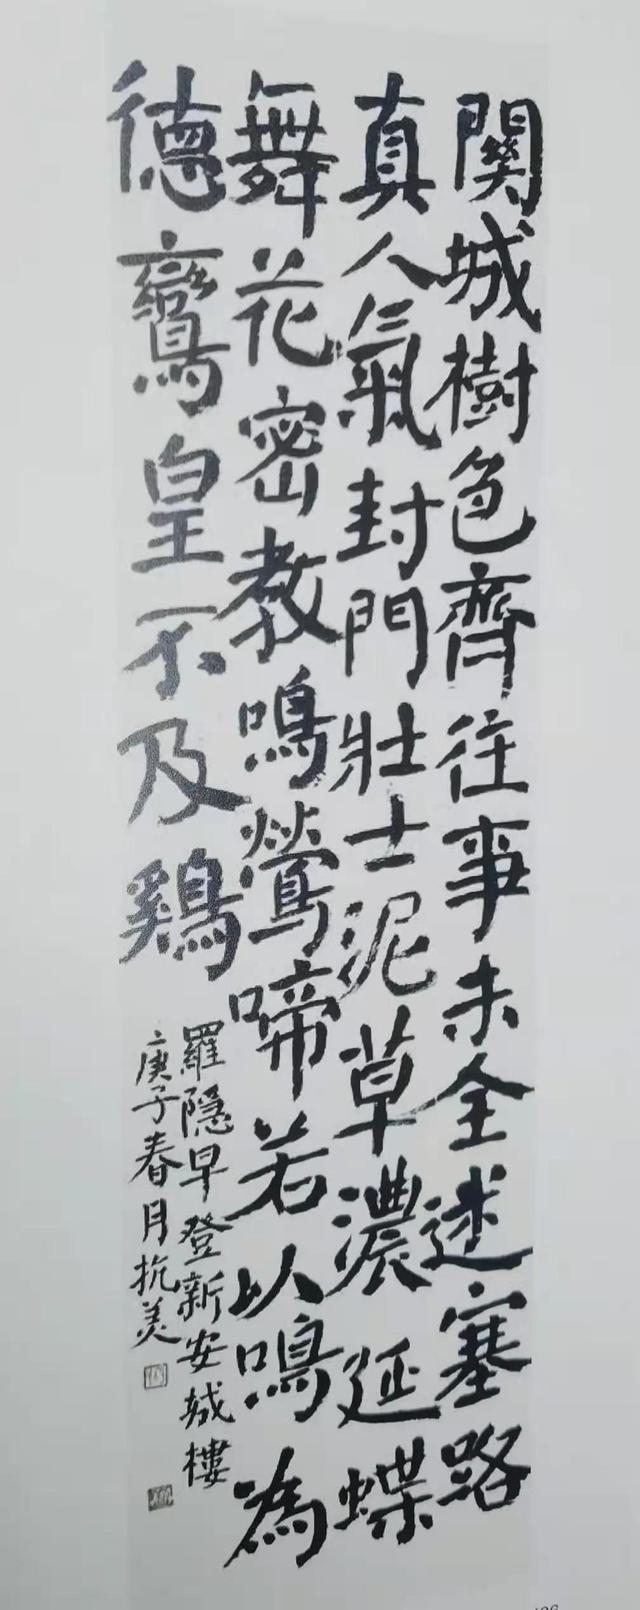 関城樹色齊往事未全迷塞路
真人氣封門壯士泥草濃延蝶
舞花密教鳴鶯啼若以鳴為
德鸞皇不及鷄
羅隱早登新安城樓
庚子春月抗美